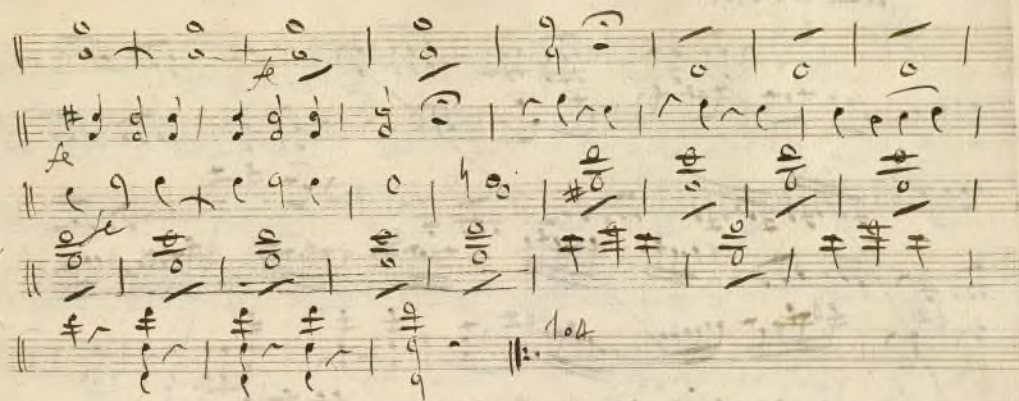 fe
fe
fe
104